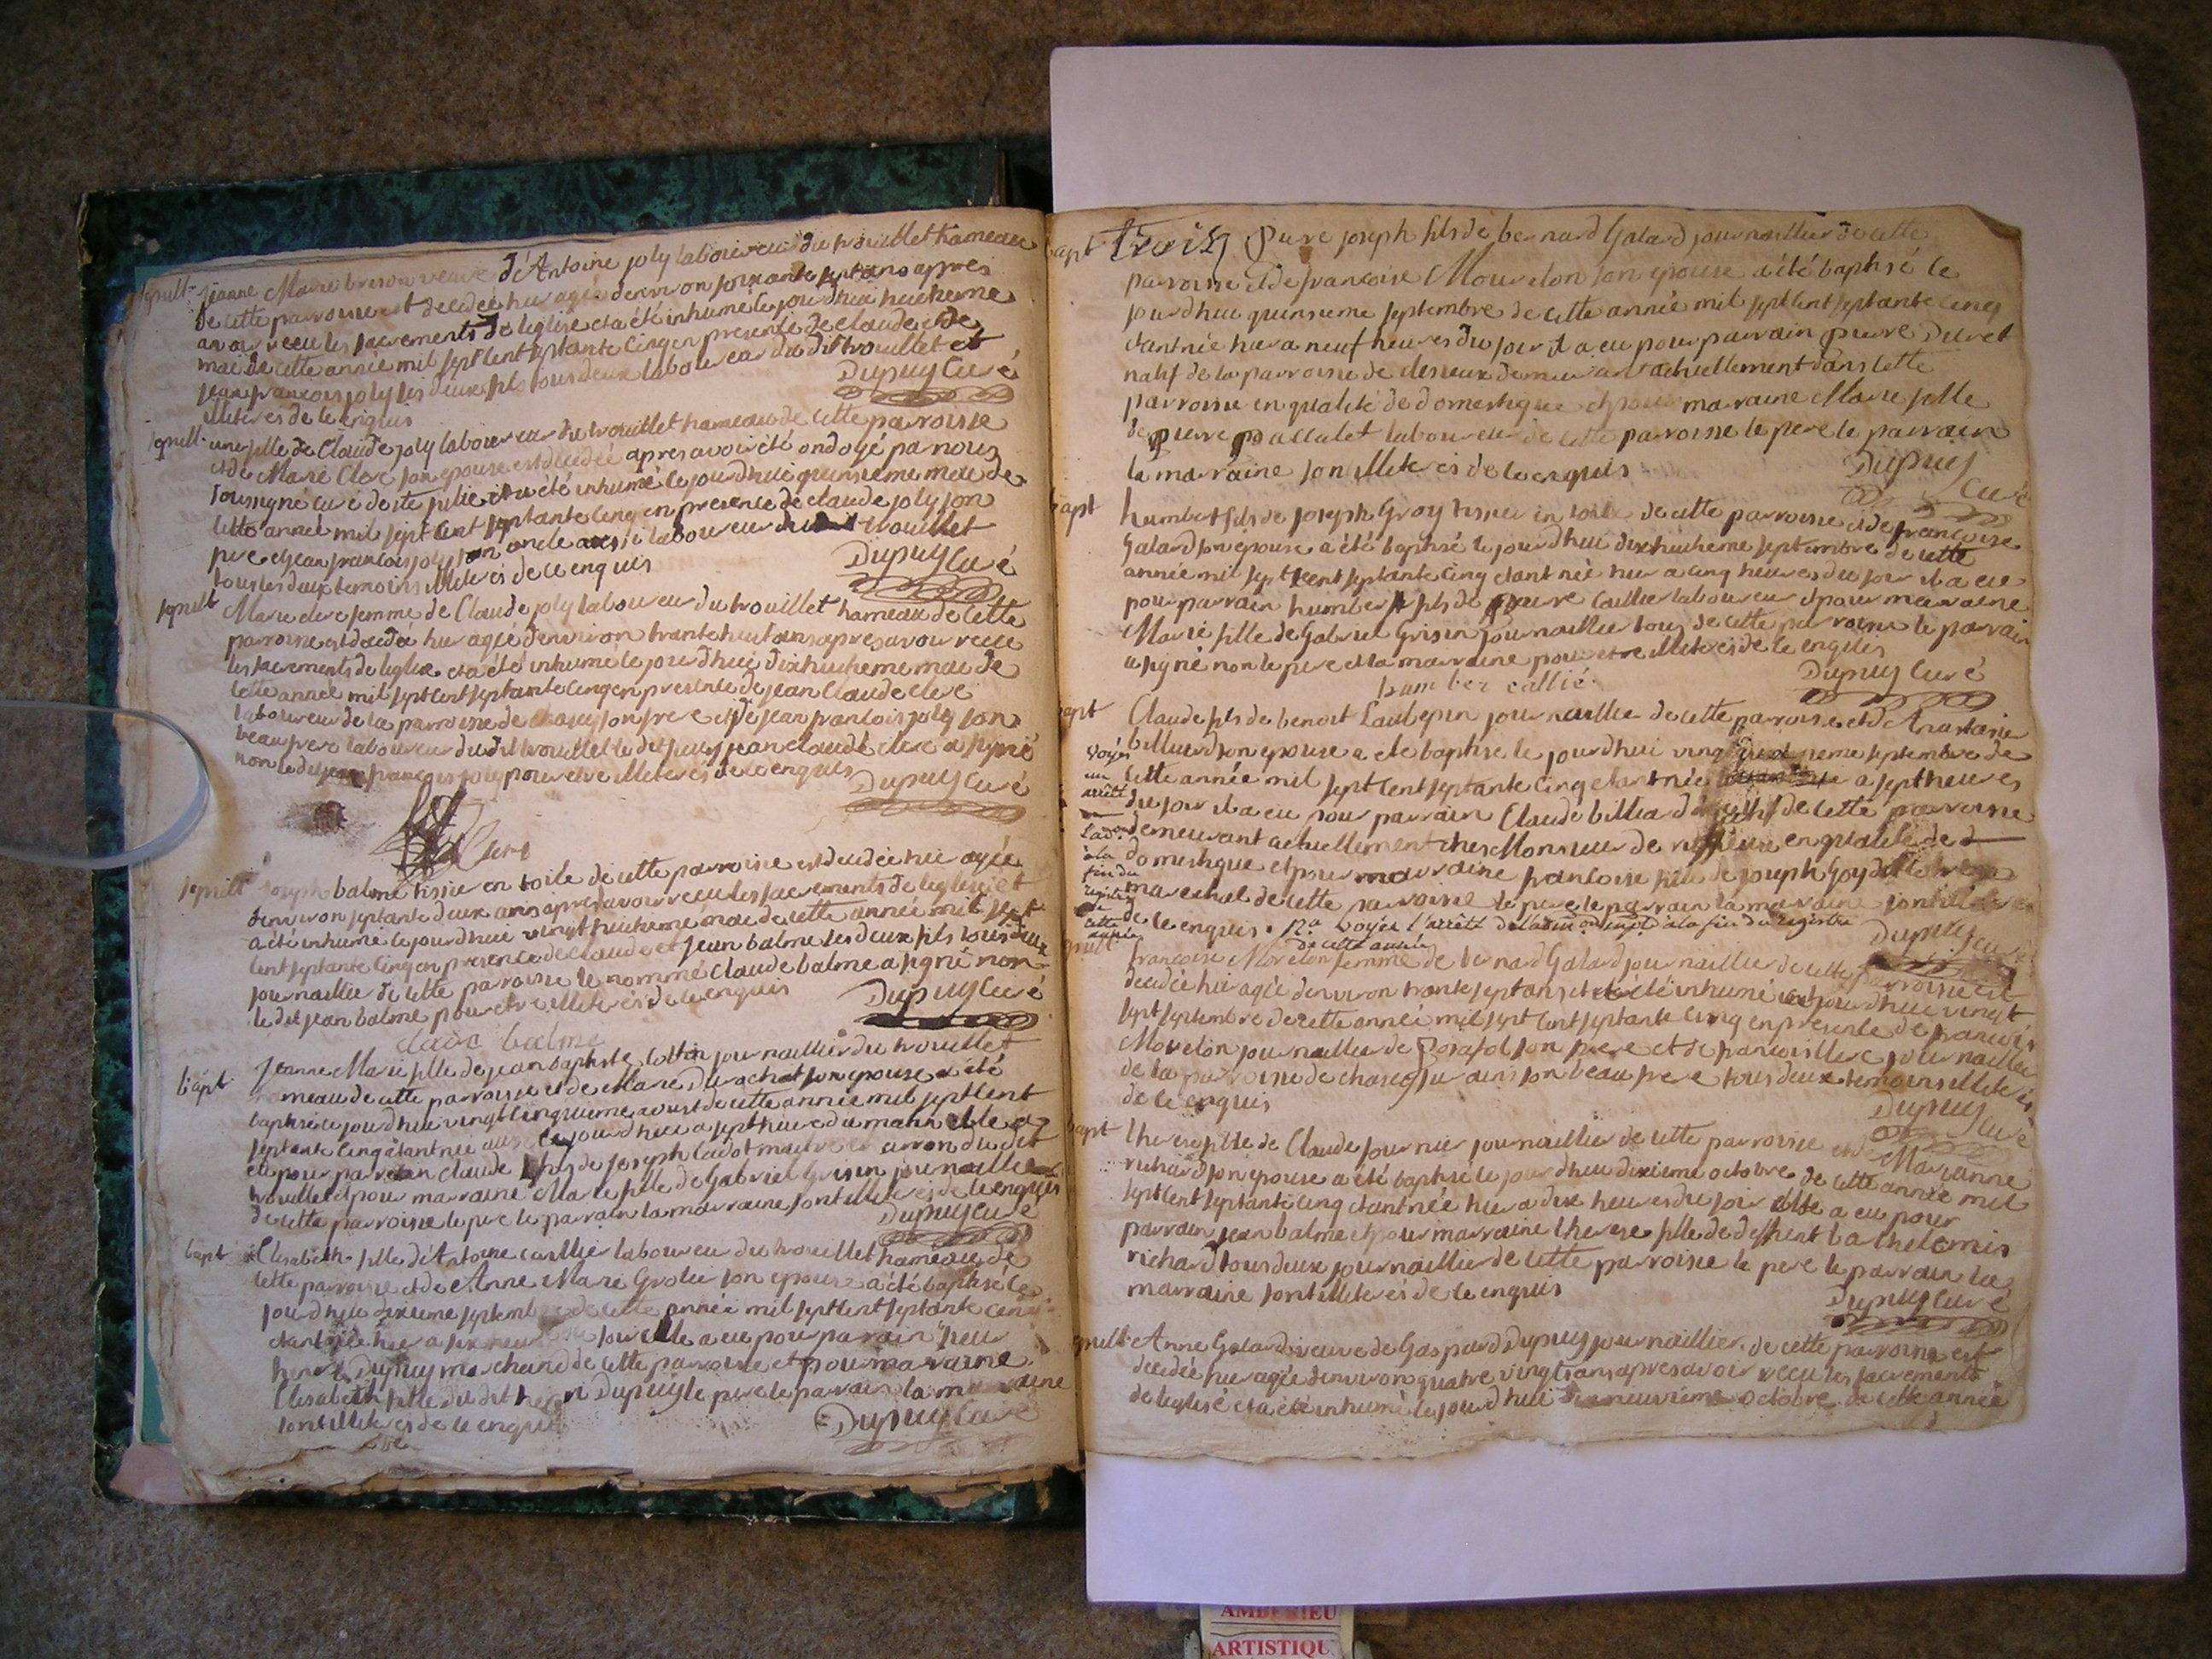 sepult jeanne Marie brison veuve d'Antoine joly laboureur du trouillet hameau
de cette parroisse est decedée hier agée denviron soixante sept ans apres
avoir recu les sacrements de leglise et a été inhumé le jourdhui huitieme
mai de cette année mil sept cent septante cinq en presence de claude et de
jean francois joly ses deux fils tous deux laboureur du dit trouillet et
illiterés de ce enquis Dupuy Curé
sepult une fille de Claude joly laboureur du trouillet hameau de cette parroisse
et de Marie Clerc son epouse est decedée apres avoir été ondoyé par nous
soussigné curé de ste julie et a été inhumé le jourdhui quinsieme mai de
cette année mil sept cent septante cinq en presence de claude joly son
pere et jean francois joly son oncle aussi laboureur du trouillet
tous les deux temoins illiterés de ce enquis Dupuy Curé
sepult Marie clerc femme de Claude joly laboureur du trouillet hameau de cette
parroisse est decedée hier agée denviron trante huit ans apres avoir recue
les sacrements de leglise et a été inhumé le jourdhui dixhuitieme mai de
cette année mil sept cent septante cinq en presence de jean Claude clerc
laboureur de la parroisse de chasey son frere et de jean francois joly son
beau frere laboureur du dit trouillet le dit jean claude clerc a signé
non le dit jean francois joly pour etre illiterés de ce enquis
Dupuy Curé
sepult joseph balme tissier en toile de cette parroisse est decedée hier agée
denviron septante deux ans apres avoir recu les sacrements de leglise et
a été inhumé le jourdhui vingt huitieme mai de cette année mil sept
cent septante cinq en presence de claude et jean balme ses deux fils tous deux
journaillier de cette parroisse le nommé claude balme a signé non
le dit jean balme pour etre illiterés de ce enquis Dupuy Curé
claude balme
bapt jeanne Marie fille de jean baptiste cottin journaillier du trouillet
hameau de cette parroisse et de Marie Durochat son epouse a été
baptisée le jourdhui vingt cinquieme aoust de cette année mil sept cent
septante cinq etant née le jourdhui a sept heure du matin elle a
eu pour parrain claude fils de joseph Cadot maitre du dit
trouillet et pour marraine Marie fille de Gabriel Grisin journaillier
de cette parroisse le pere le parrain la marraine sont illiterés de ce enquis
Dupuy Curé
bapt Elisabeth fille d'Antoine caillier laboureur du trouillet hameau de
cette parroisse et de Anne Marie Grolier son epouse a été baptisé le
jourdhui dixieme septembre de cette année mil sept cent septante cinq
etant née hier a six heures du soir elle a eu pour parrain
henri Dupuy marchand de cette parroisse et pour maraine
Elisabeth fille du dit henri Dupuy le pere le parrain la marraine
sont illiterés de ce enquis
Dupuy Curé
bapt trois Pierre joseph fils de bernard Galard journaillier de cette
parroisse et de francoise Mourelon son epouse a été baptisé le
jourdhui quinsieme septembre de cette année mil sept cent septante cinq
etant née hier a neuf heures du soir il a eu pour parrain pierre Decret
natif de la parroisse de demeurant actuellement dans cette
parroisse en qualité de domestique et pour marraine Marie fille
de pierre pallulet laboureur de cette parroisse le pere le parrain
la marraine son illiterés de ce enquis Dupuy
Curé
bapt humbert fils de joseph Groy tissier en toile de cette parroisse et de francoise
Galard son epouse a été baptisé le jourdhui dixhuitieme septembre de cette
année mil sept cent septante cinq etant née hier a cinq heures du soir il a eu
pour parrain humbert fils de pierre caillier laboureur et pour maraine
Marie fille de Gabriel Grisin journaillier tous de cette parroisse le parrain
a signé non le pere et la marraine pour etre illiterés de ce enquis
humber callié Dupuy Curé
bapt Claude fils de benoit Laulepin journaillier de cette parroisse et de Anastasie
billiard son epouse a été baptisé le jourdhui vingt septembre de
cette année mil sept cent septante cinq etant née a sept heures
du soir il a eu pour parrain Claude billiard de cette parroisse
demeurant actuellement ches Monsieur de en qualité de
domestique et pour marraine francoise fille de joseph Goy
marechal de cette parroisse le pere le parrain la marraine sont illiterés
de ce enquis. Na voyés l'arrêté à la fin du registre
de cette année Dupuy Curé
voyés
un
arrêté
à la
fin du
registre
de
cette
année
sepult francoise Morelon femme de bernard Galard journaillier de cette parroisse est
decedée hier agée denviron trante sept ans et a été inhumé le jourdhui vingt
sept septembre de cette année mil sept cent septante cinq en presence de francois
Morelon journaillier de Posafol son frere et de francois journaillier
de la parroisse de chasey sur ains son beau frere tous deux temoins illiterés
de ce enquis Dupuy Curé
bapt therese fille de Claude fournier journaillier de cette parroisse et de Marianne
richard son epouse a été baptisé le jourdhui dixieme octobre de cette année mil
sept cent septante cinq etant née hier a dix heures du soir elle a eu pour
parrain jean balme et pour marraine therese fille de deffunt barthelemis
richard tous deux journaillier de cette parroisse le pere le parrain la
marraine sont illiterés de ce enquis
Dupuy Curé
sepult Anne Galard veuve de Gaspard Dupuy journaillier de cette parroisse est
decedée hier agée denviron quatre vingts ans apres avoir recu les sacrements
de leglise et a été inhumé le jourdhui dixneuvieme octobre de cette année
AMBERIEU
ARTISTIQU